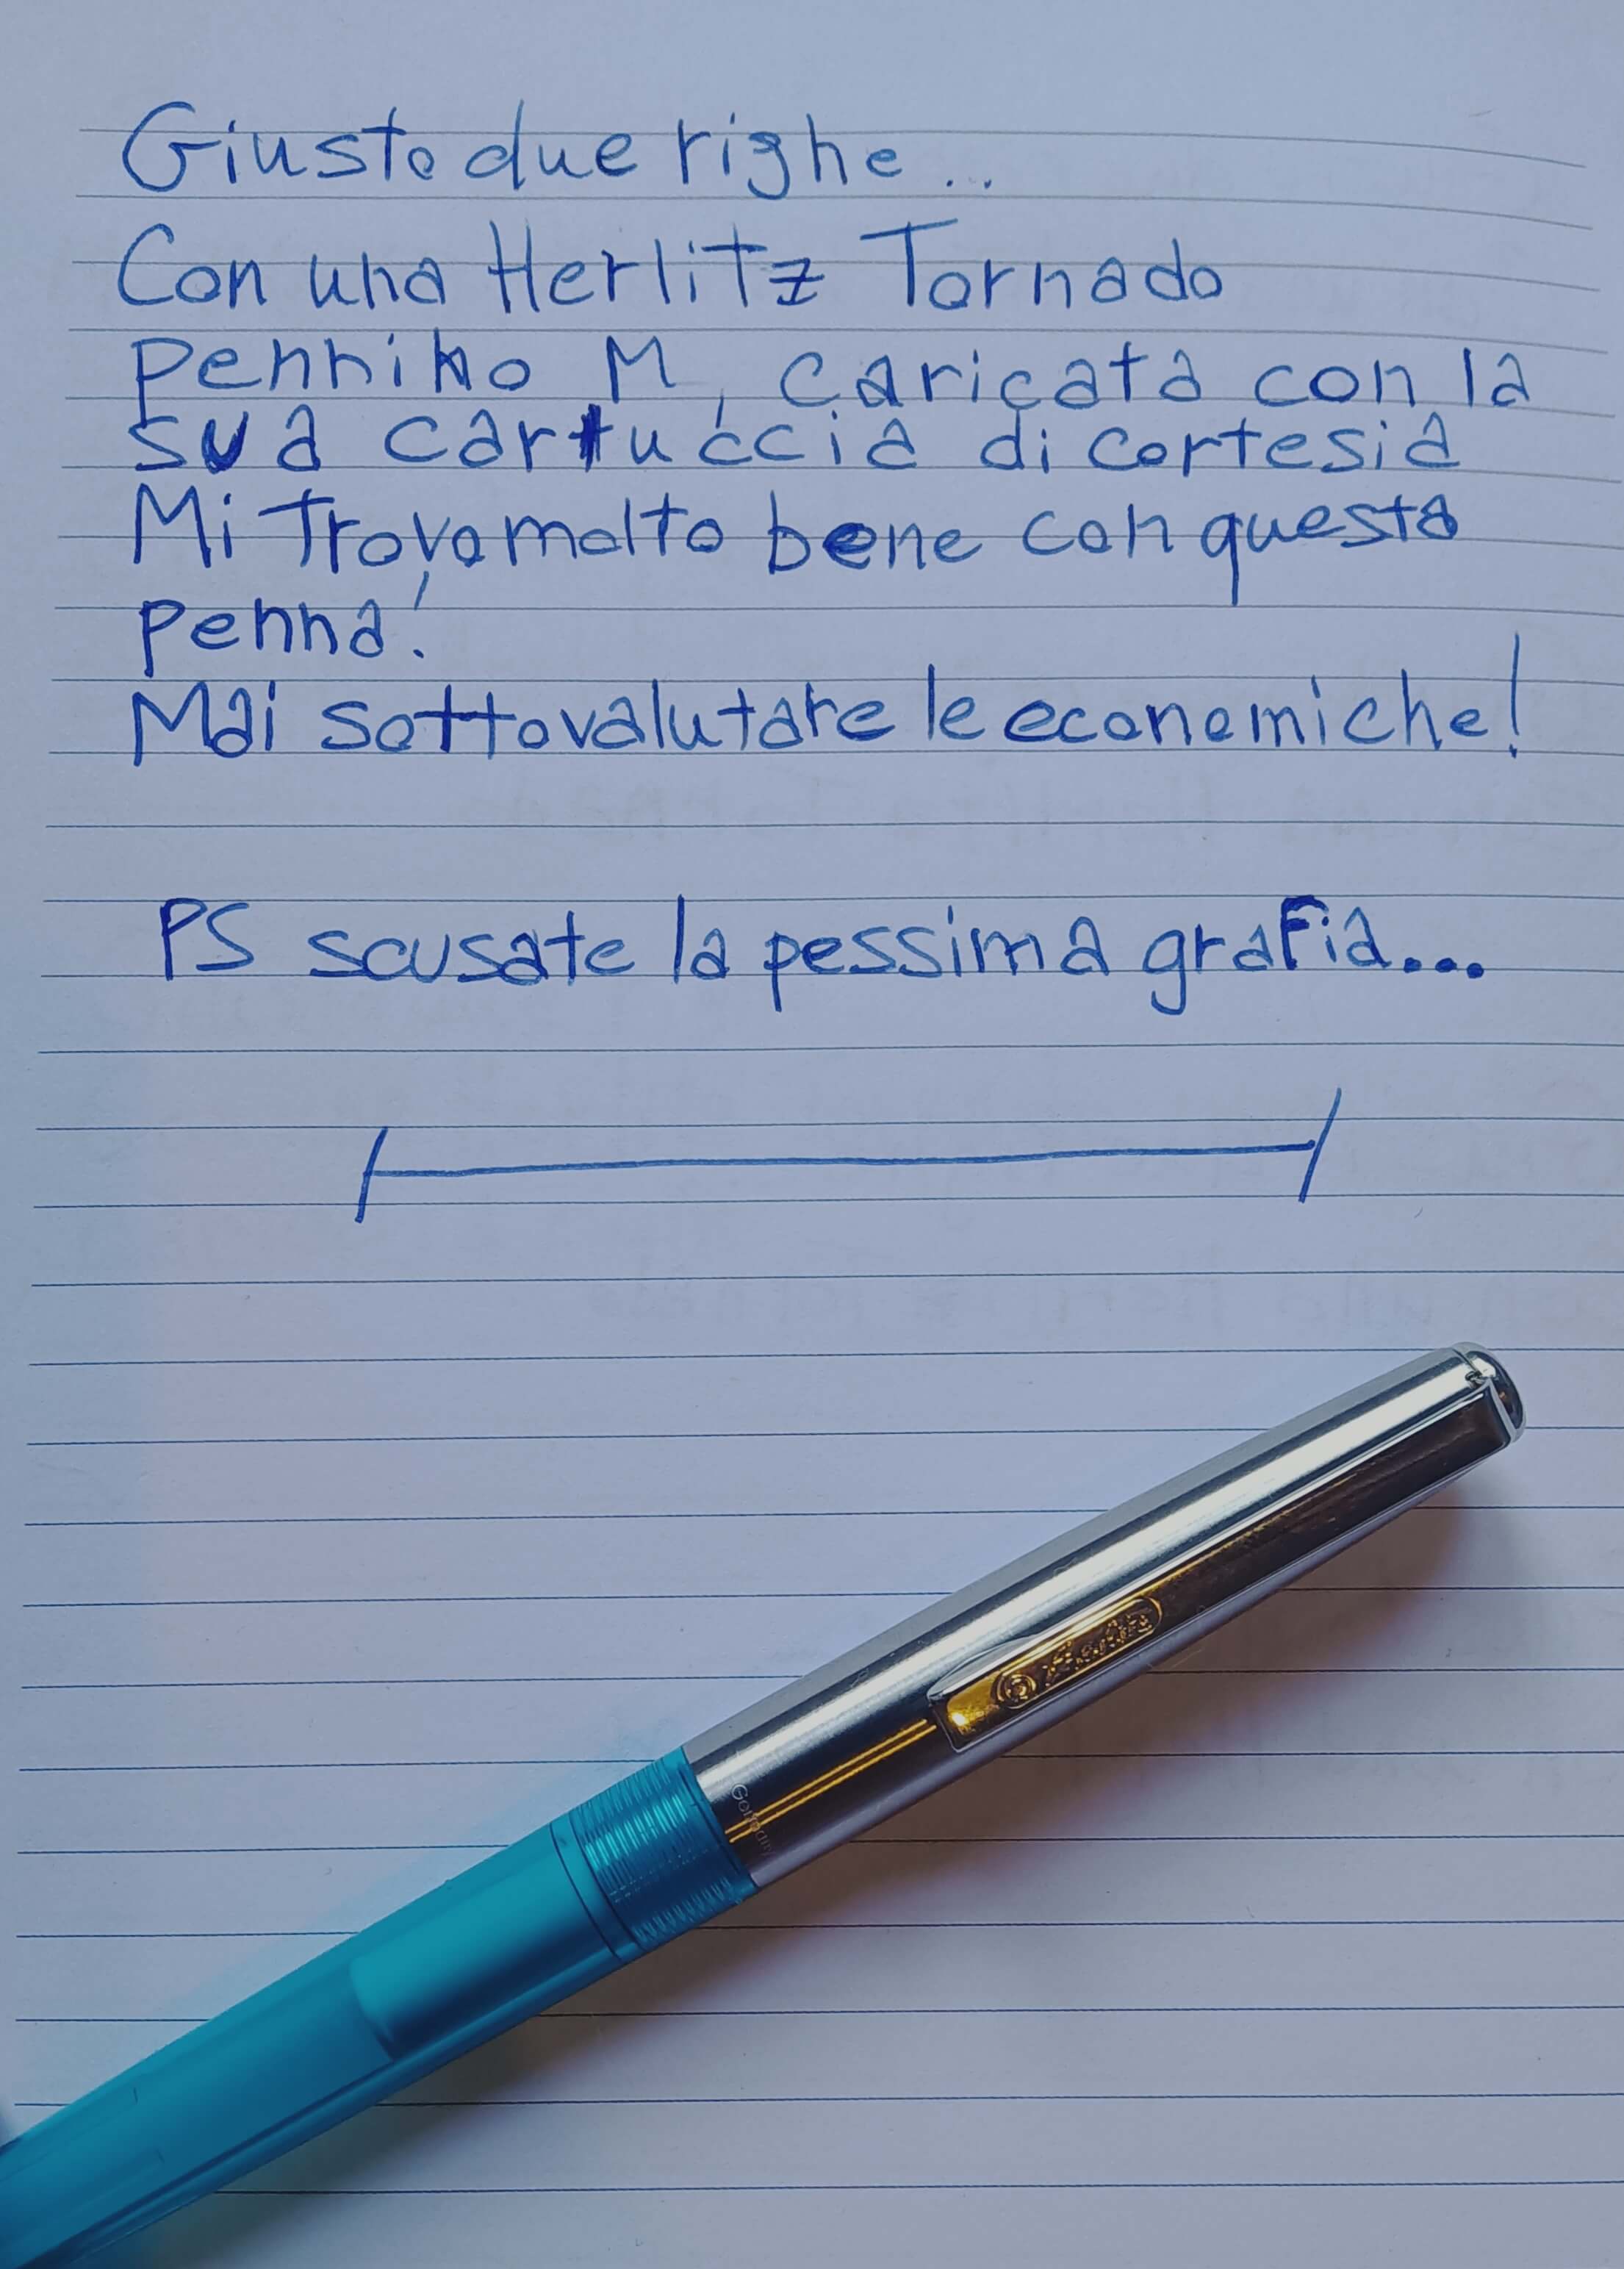 Giusto due righe...
Con una Herlitz Tornado
pennino M, caricata con la
sua cartuccia di cortesia
Mi trovo molto bene con questa
penna!
Mai sottovalutare le economiche!
PS scusate la pessima grafia...
Germany